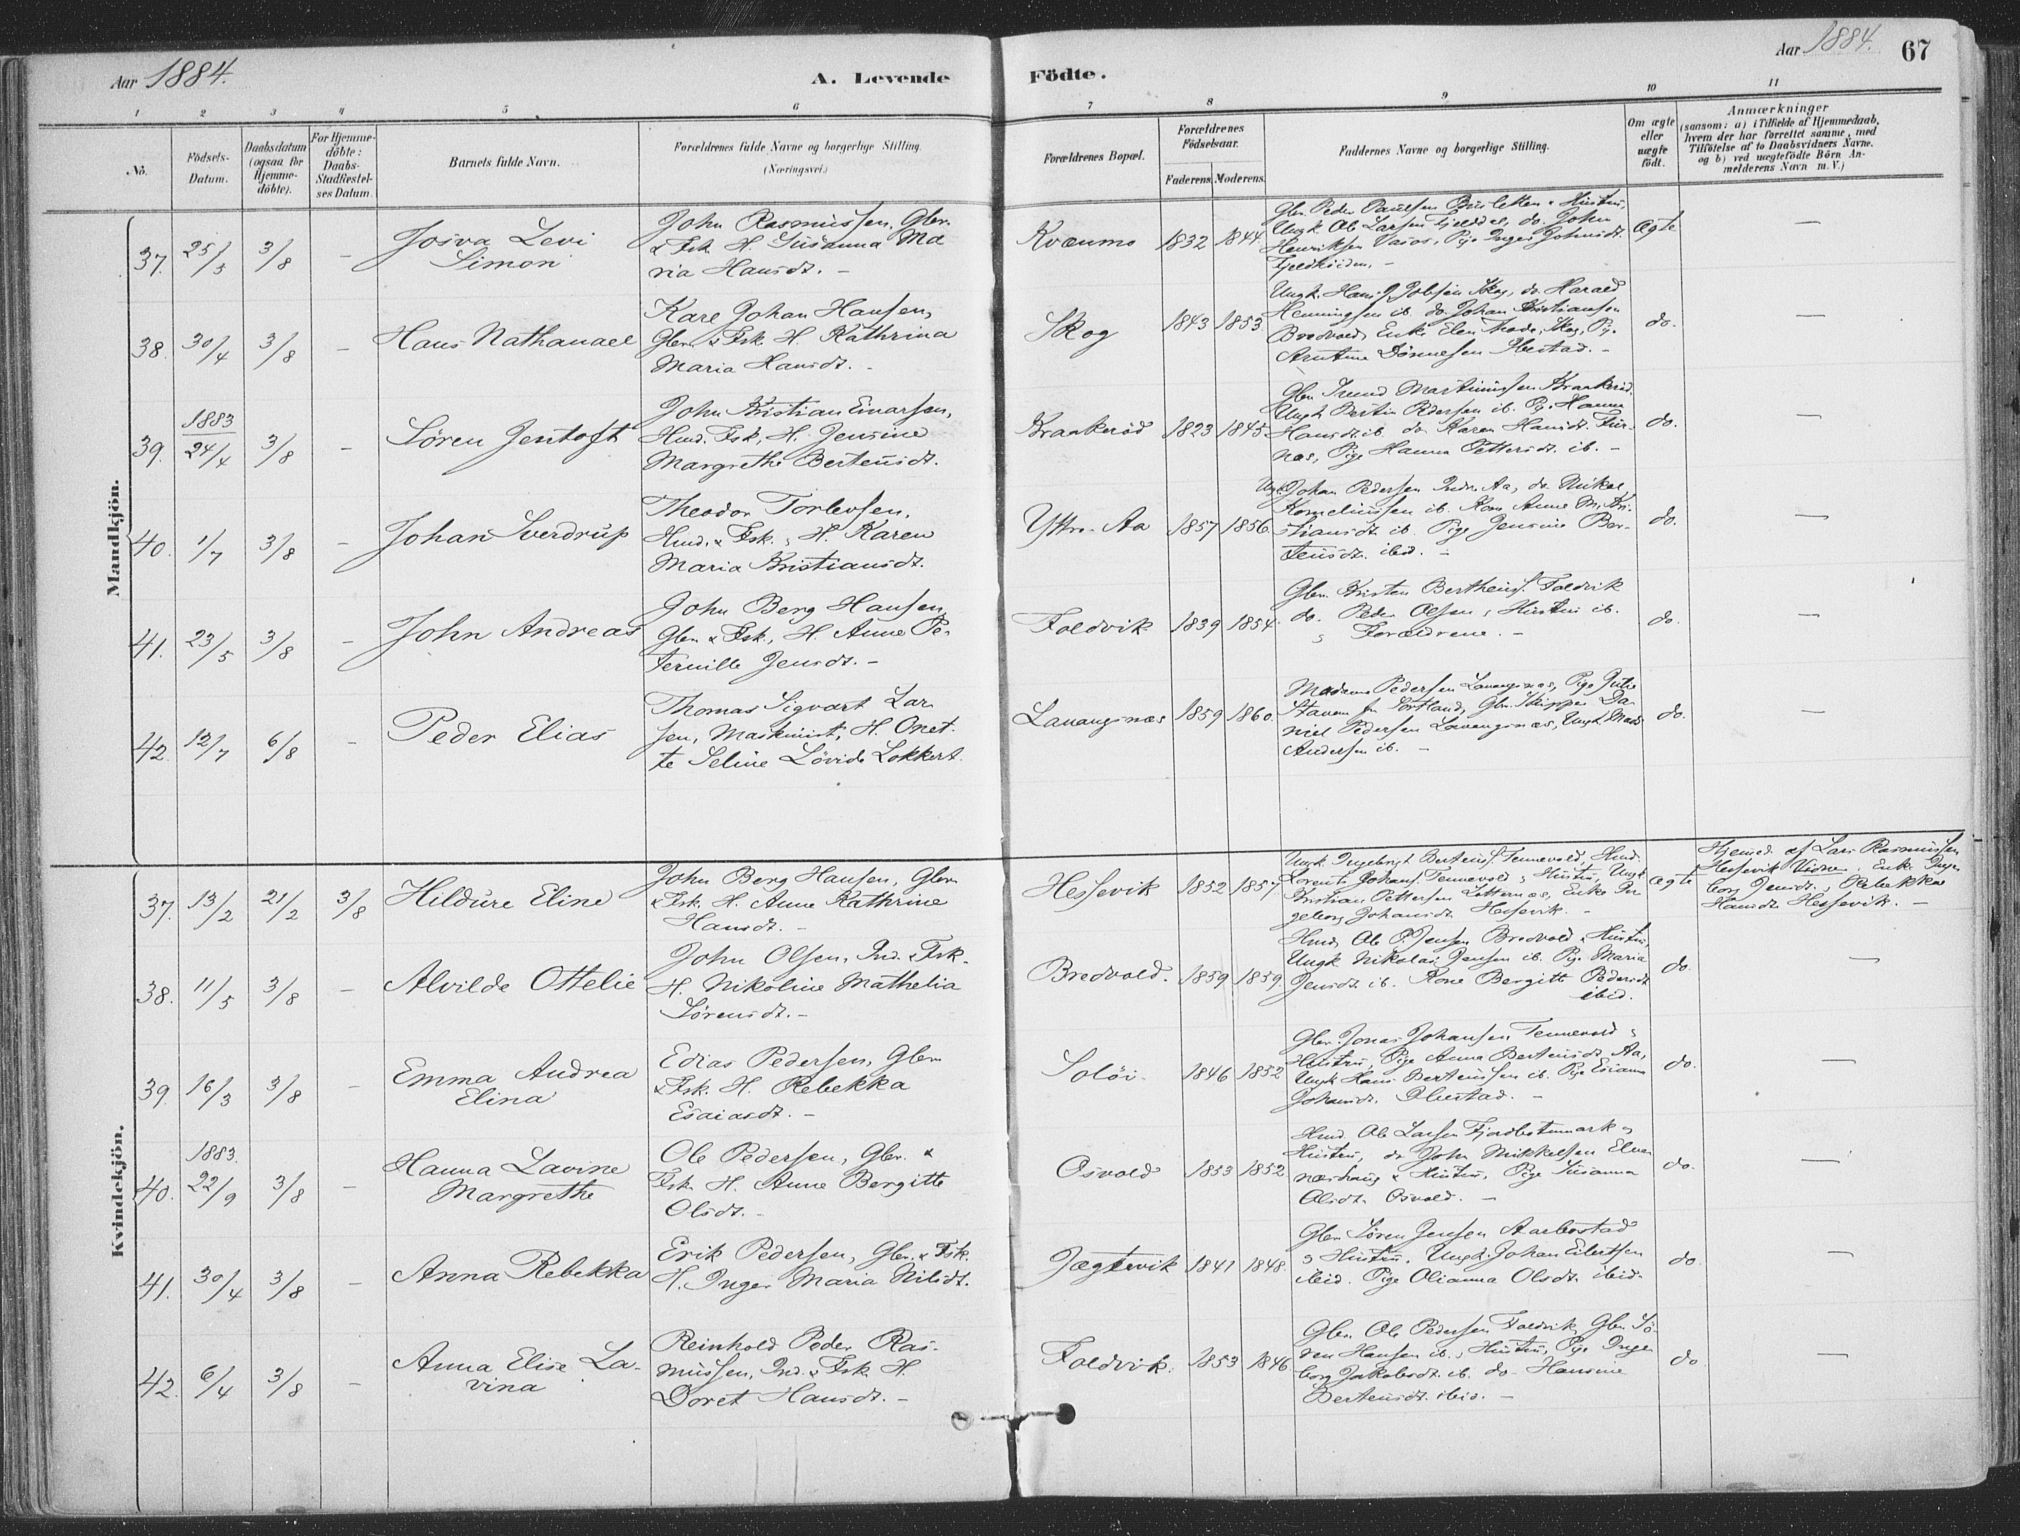 Aar 1884.
A. Levende Födte.
Aar 1884.
67
1 2 3 4 5 6 7 8 9 10 11
No.
Födsels-
Datum.
Daabsdatum
(ogsaa for
Hjemme-
döbte).
For Hjemme-
döbte:
Daabs-
Stadfæstel-
ses Datum.
Barnets fulde Navn.
Forældrenes fulde Navne og borgerlige Stilling.
(Næringsvei.)
Forældrenes Bopæl.
Forældrenes
Födselsaar.
Faderens. Moderens.
Faddernes Navne og borgerlige Stilling.
Om ægte
eller
uægte
født.
Anmærkninger
(saasom: a) i Tilfælde af Hjemmedaab,
hvem der har forrettet samme, med
Tilföielse af to Daabsvidners Navne.
og b) ved uægtefödte Börn An-
melderens Navn m. V.)
Mandkjön.
37. 25/3 3/8 - Josva Levi
Simon
John Rasmussen, Gbr.
& Fsk. H. Susanna Ma
ria Hansdt. -
Kvænmo 1832 1844
Gbr. Peder Paulsen & Hustru,
Ungk. Ole Larsen do. John
Henriksen Pige Inger Johnsdt.
Ægte —
38. 30/4 3/8 - Hans Nathanael
Kare Johan Hansen,
Gbr. & Fsk. H. Kathrina
Maria Hansdt. -
Skog 1843 1853
Ungk. Hans J. Skog, do. Harald
Henningsen ib. do. Johan Kristiansen
Bredvold, Enke Elen Skog, Pige
Ibestad. -
do. —
39. 1883 24/4 3/8 - Søren Jentoft
John Kristian Einarsen,
Hmd. Fsk, H. Jensine
Margrethe Berteusdt.
Kraakerød 1823 1845
Gbr. Martinussen Kraakerød.
Ungk. Bertin Pedersen ib. Pige Hanna
Hansdt. ib. do Karen Hansdt. Fur-
nes, Pige Hanna Pettersdt. ib. -
do. —
40. 1/7 3/8 - Johan Sverdrup
Theodor Torlevsen,
Hmd. & Fsk., H. Karen
Maria Kristiansdt.
Yttre-Aa 1857 1856
Ungk. Johan Pedersen Indre Aa, do. Mikal
Korneliussen ib. Kone Anne M. Kri-
stiansdt. ib. Pige Jensine Ber-
teusdt. ibid. -
do. —
41. 23/5 3/8 - John Andreas
John Berg Hansen,
Gbr. & Fsk., H. Anne Pe-
ternille Jensdt. -
Foldvik 1839 1854.
Gbr. Kristen Bertheus. Foldvik
do. Peder Olsen & Hustru ib.
& Forældrene. -
do. —
42. 12/7 6/8 - Peder Elias
Thomas Sigvart Lar
sen, Maskinist, H. Onet-
te Seline Lövide Lokkert.
Lavangsnæs 1859 1860.
Madame Pedersen Lavangsnæs, Pige Julie
Stavem fra Sortland, Gbr. Skipper Da
niel Pedersen Lavangsnæs, Ungk. Mads
Andersen ib. -
do. —
Kvindekjön.
37. 13/2 21/2 3/8 Hildure Eline
John Berg Hansen, Gbr.
& Fsk. H. Anne Kathrine
Hansdt. -
Hessevik 1852 1857
Ungk. Ingebregt Berteus. Tennevold, Hmd.
Lorents Johans. Tennevold & Hustru, Ungk
Kristian Pettersen Enke In-
geborg Johansdt. Hessevik. -
Ægte
Hjemd. af Lars Rasmussen
Hessevik Vidner: Enke Inge
borg Jensdt. & Rebekka
Hansdt. Hessevik. -
38. 11/5 3/8 - Alvilde Ottelie
John Olsen, Ind. & Fsk.
H. Nikoline Mathelia
Sörensdt. -
Bredvold. 1859 1859.
Hmd. Ole P. Jensen Bredvold & Hustru,
Ungk Nikolai Jensen ib. Pige Maria
Jensdt. ib. Kone Bergitte Pedersdt
ibid.
do. —
39. 16/3 3/8 - Emma Andrea
Elina
Edias Pedersen, Gbr
& Fsk. H. Rebekka
Esaiasdt. -
Solöi. 1846 1852
Gbr. Jonas Johansen Tennevold &
Hustru, Pige Anna Berteusdt. Aa,
Ungk Hans Berteussen ib. Pige
Johansdt. Ibestad. -
do. —
40. 1883. 22/9 3/8 - Hanna Lavine
Margrethe
Ole Pedersen, Gbr. &
Fsk. H. Anne Bergitte
Olsdt. -
Osvold 1853 1852
Hmd. Ole Larsen Fjordbotnmark &
Hustru, do John Mikkelsen Elve
næshaug & Hustru, Pige Susanna
Olsdt. Osvold. -
do. —
41. 30/4 3/8 - Anna Rebekka
Erik Pedersen, Gbr. & Fsk.
H. Inger Maria Nilsdt.
Jægtevik 1841 1848.
Gbr. Sören Jensen Aarbostad
& Hustru, Ungk. Johan Eilertsen
ibid. Pige Olianna Olsdt. ibid.
do. —
42. 6/4 3/8 - Anna Elise La-
vina
Reinhold Peder Ras-
mussen, Ind. & Fsk H.
Doret Hansdt. -
Foldvik. 1853 1846
Gbr. Ole Pedersen Foldvik, Gbr. Sö-
ren Hansen ib. & Hustru, Pige Inge
borg Jakobsdt. ib. do Hansine
Berteusdt. ibid. -
do —